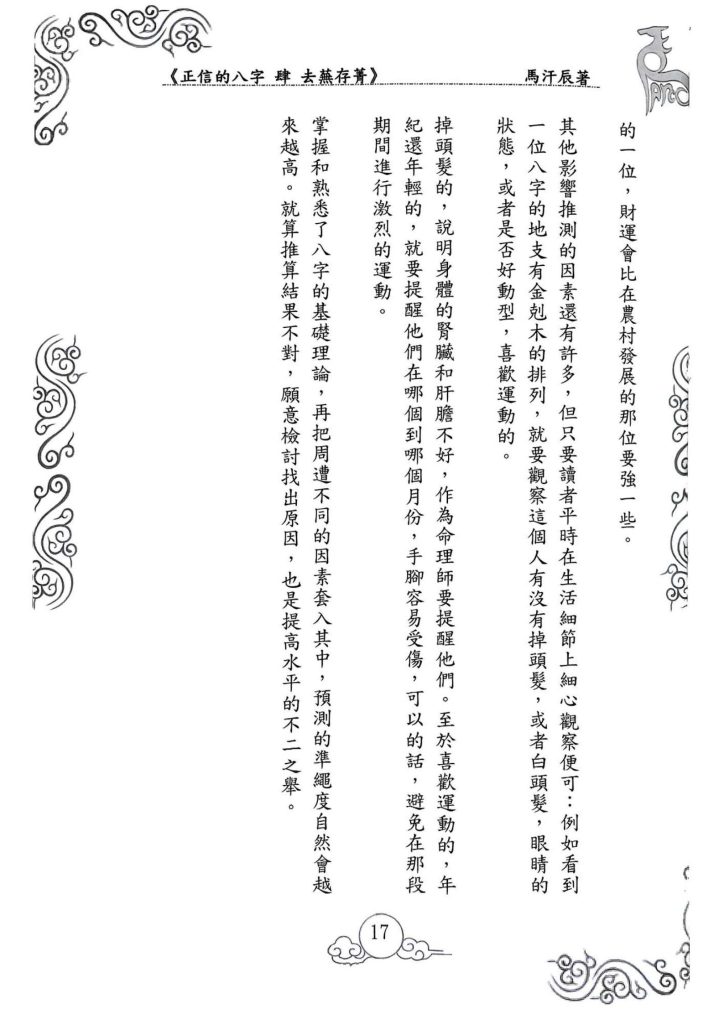 《正信的八字 肆 去蕪存菁》 馬汗辰著
的一位，財運會比在農村發展的那位要強一些。
其他影響推測的因素還有許多，但只要讀者平時在生活細節上細心觀察便可：例如看到
一位八字的地支有金剋木的排列，就要觀察這個人有沒有掉頭髮，或者白頭髮，眼睛的
狀態，或者是否好動型，喜歡運動的。
掉頭髮的，說明身體的腎臟和肝膽不好，作為命理師要提醒他們。至於喜歡運動的，年
紀還年輕的，就要提醒他們在哪個到哪個月份，手腳容易受傷，可以的話，避免在那段
期間進行激烈的運動。
掌握和熟悉了八字的基礎理論，再把周遭不同的因素套入其中，預測的準繩度自然會越
來越高。就算推算結果不對，願意檢討找出原因，也是提高水平的不二之舉。
17